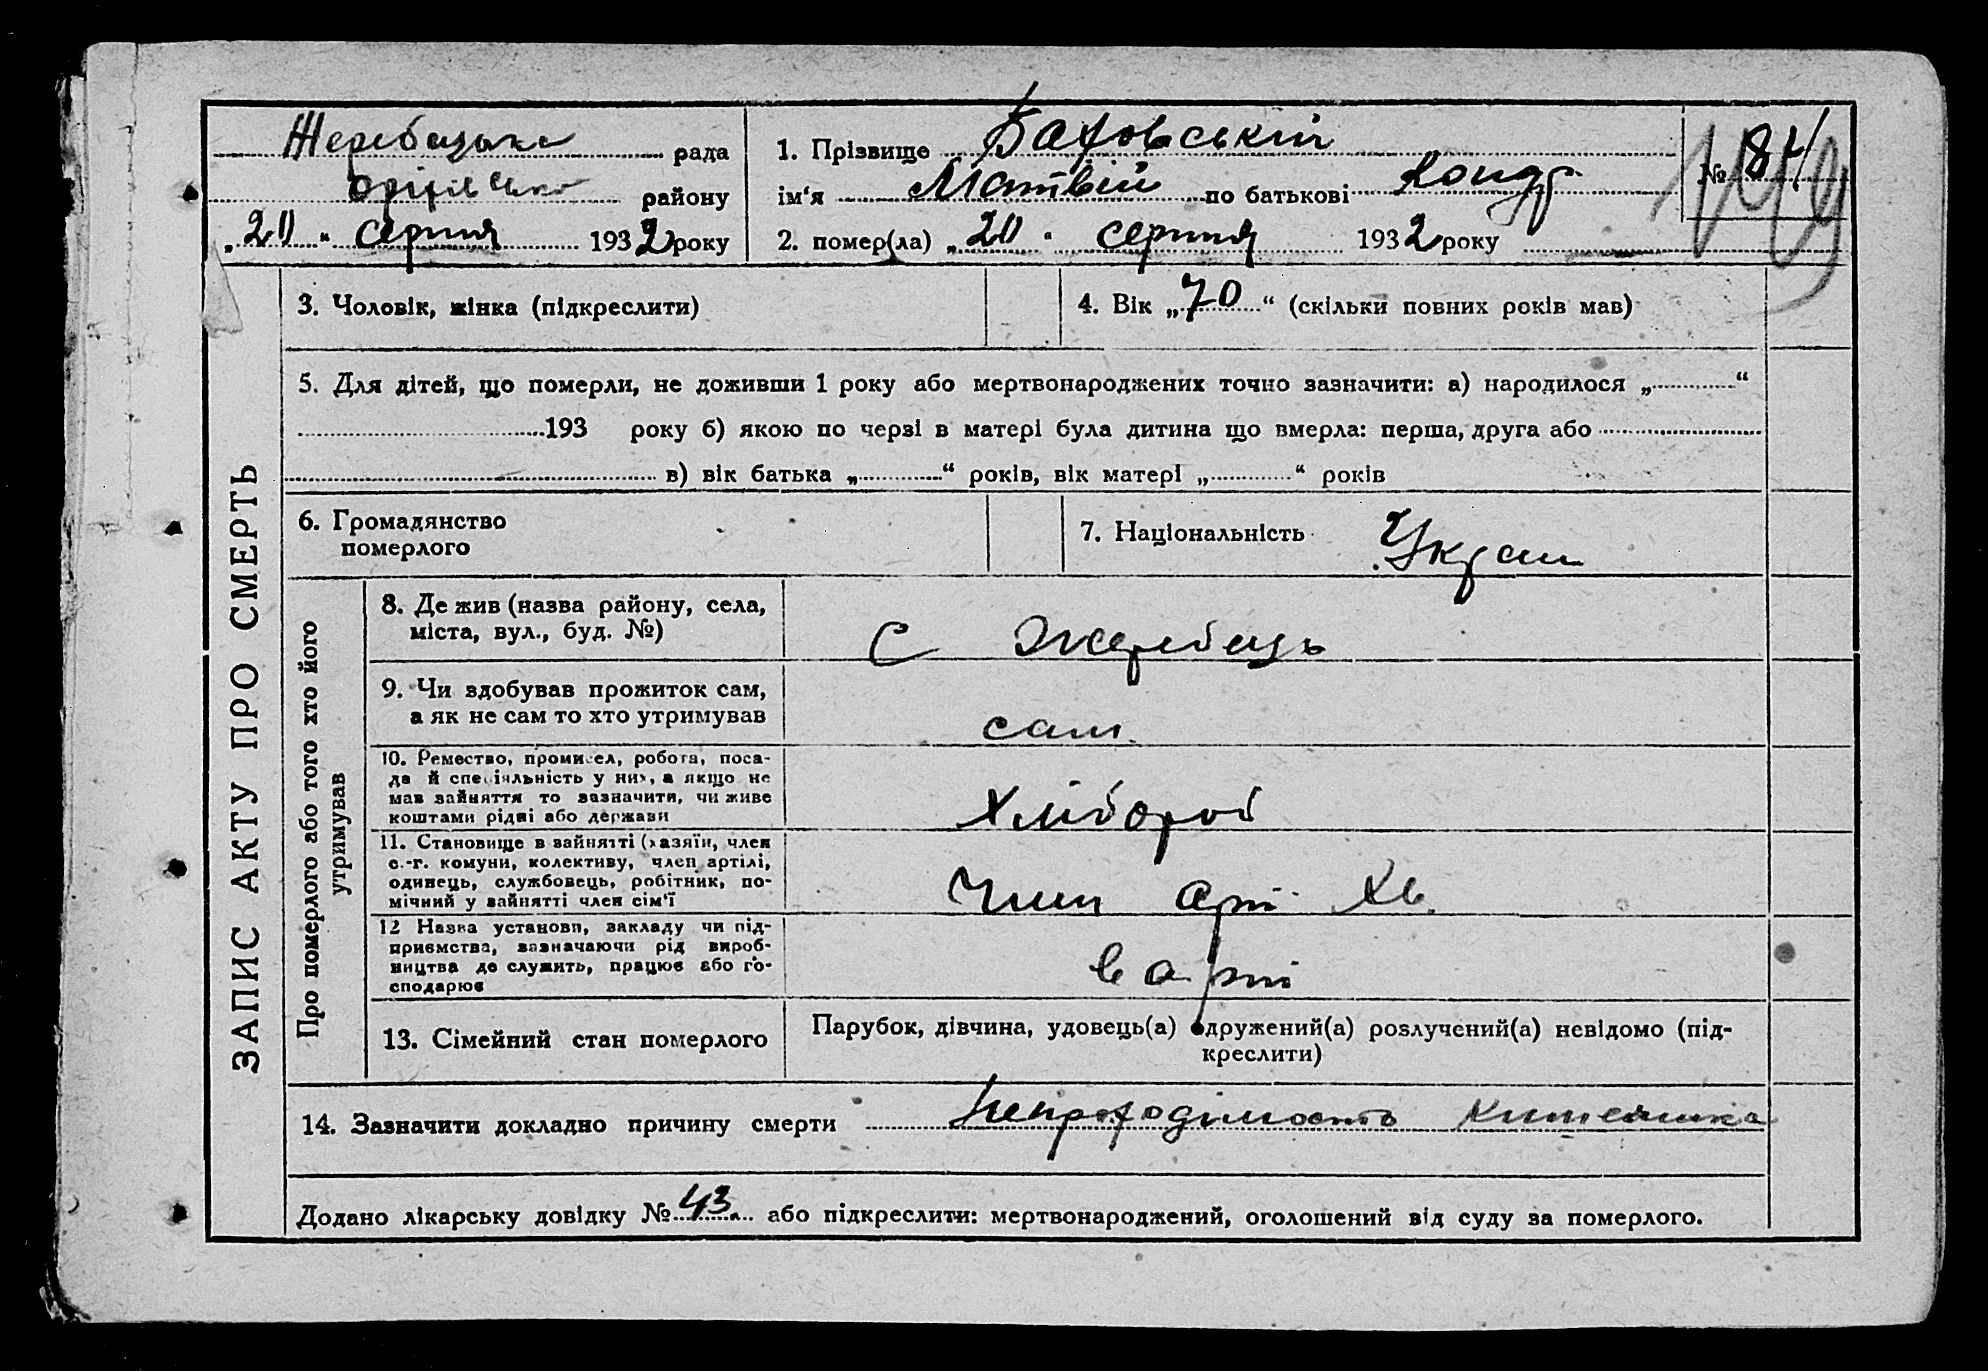 Жеребецька рада
Оріхівського району
„20“ серпня 1932 року
1. Прізвище Баховський
ім‘я Матвій по батькові Кондр
2. помер(ла) „20“ серпня 1932 року
№ 84
149
ЗАПИС АКТУ ПРО СМЕРТЬ
3. Чоловік, жінка (підкреслити)
4. Вік „70“ (скільки повних років мав)
5. Для дітей, що померли, не доживши 1 року або мертвонароджених точно зазначити: а) народилося „ “
193 року б) якою по черзі в матері була дитина що вмерла: перша, друга або
в) вік батька „ “ років, вік матері „ “ років
6. Громадянство
померлого
7. Національність Украін
Про померлого або того хто його
утримував
8. Де жив (назва району, села,
міста, вул., буд. №)
С Жеребець
9. Чи здобував прожиток сам,
а як не сам то хто утримував
сам
10. Ремество, промисел, робота, поса-
да й спеціяльність у них, а якщо не
мав зайняття то зазначити, чи живе
коштами рідні або держави
Хлібороб
11. Становище в зайнятті (хазяїн, член
с.-г. комуни, колективу, член артілі,
одинець, службовець, робітник, по-
мічний у зайнятті член сім‘ї
Член арт
12 Назва установи, закладу чи під-
приємства, зазначаючи рід вироб-
ництва де служить, працює або го-
сподарює
в арті
13. Сімейний стан померлого
Парубок, дівчина, удовець(а) одружений(а) розлучений(а) невідомо (під-
креслити)
14. Зазначити докладно причину смерти Непроходімость кишечника
Додано лікарську довідку № 43 або підкреслити: мертвонароджений, оголошений від суду за померлого.